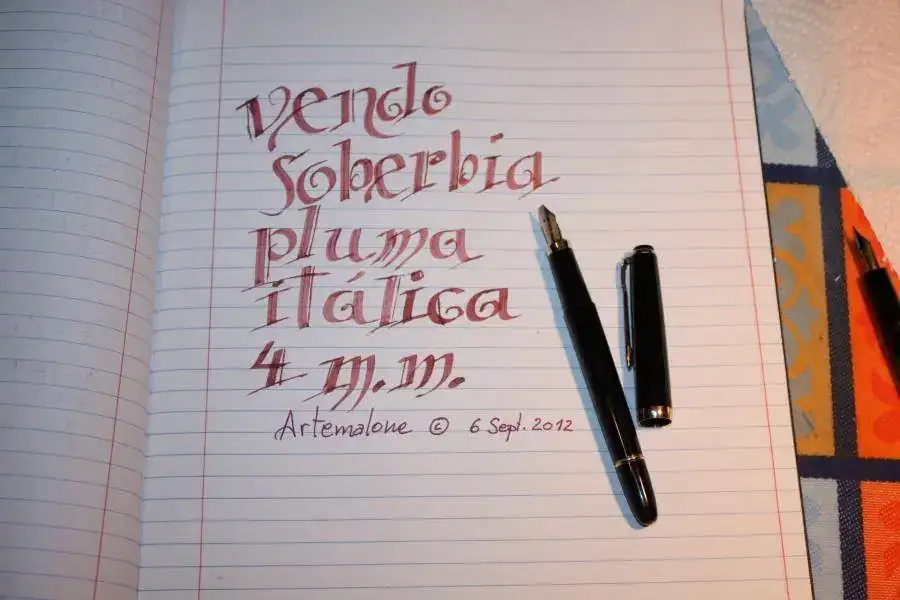 vendo
soberbia
pluma
itálica
4 m.m.
Artemalone © 6 Sept. 2012